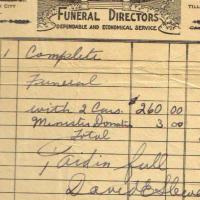 K CITY
TILL
FUNERAL DIRECTORS
DEPENDABLE AND ECONOMICAL SERVICE
1 Complete
Funeral
with 2 Cars $260 00
Minister Donation 3 00
Total
Paid in full
David E